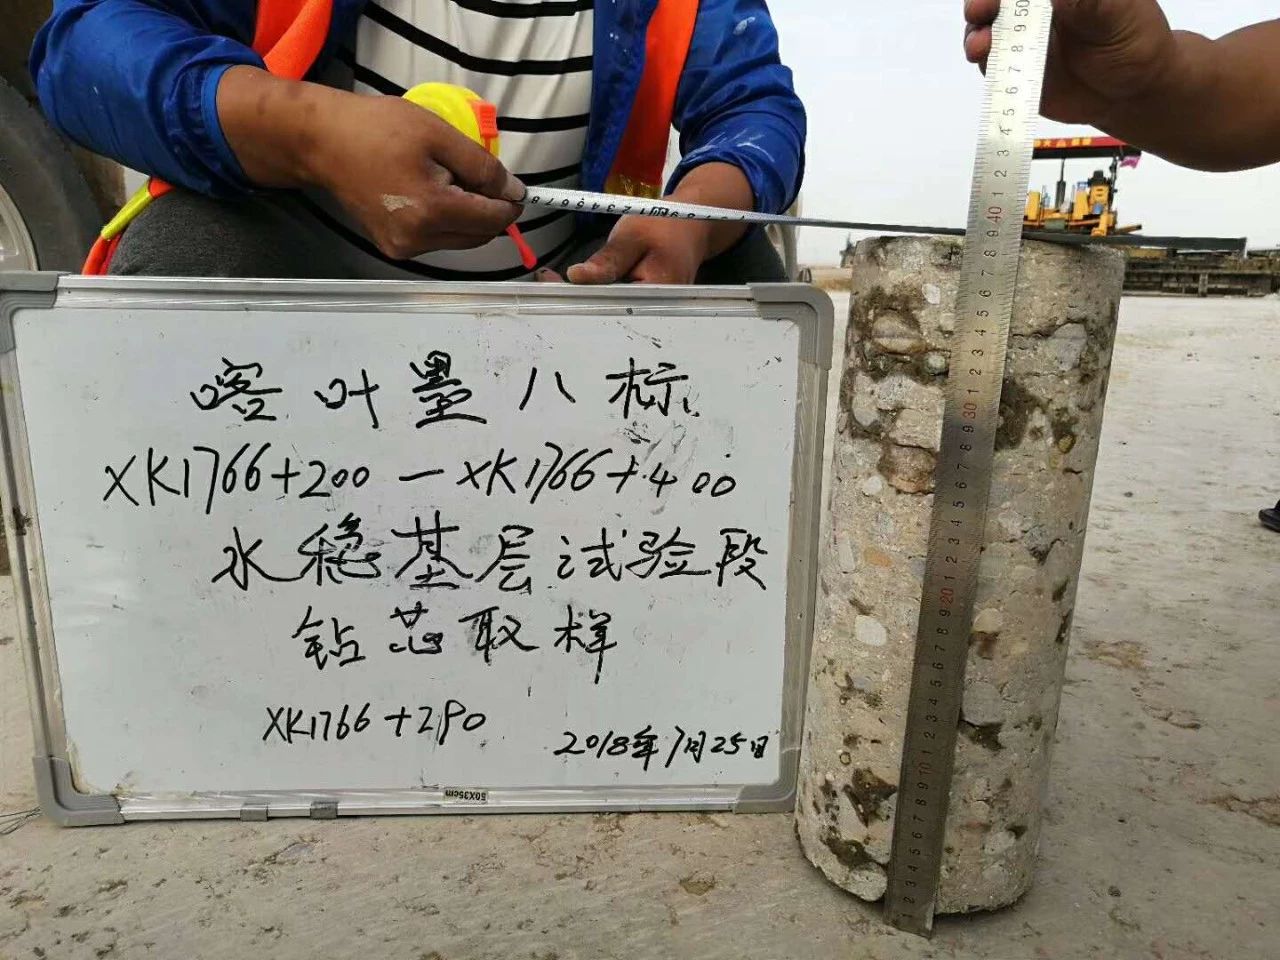 喀叶墨八标
XK1766+200—XK1766+400
水稳基层试验段
钻芯取样
XK1766+290
2018年7月25日
50X35cm